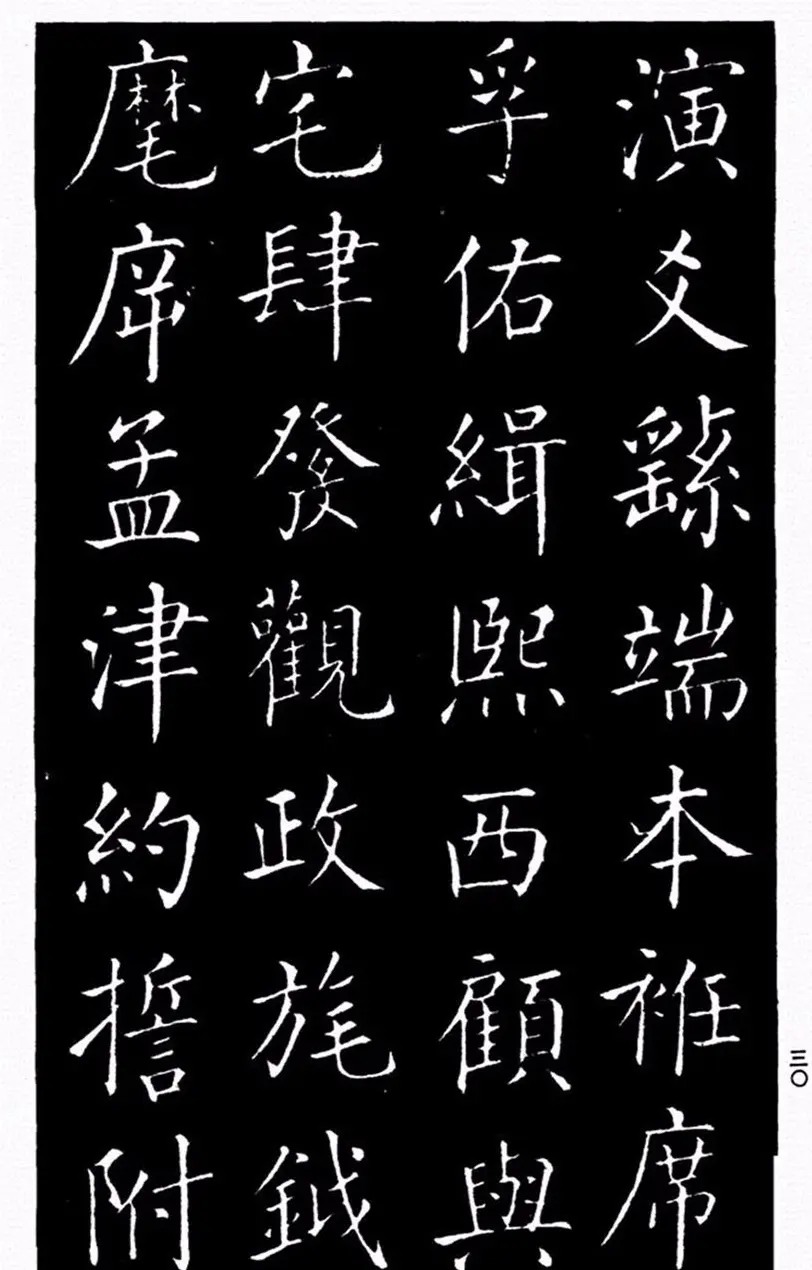 演爻䌛端本袵席
孚佑緝熙西顧與
宅肆發觀政旄鉞
麾㡿孟津約誓附
三〇